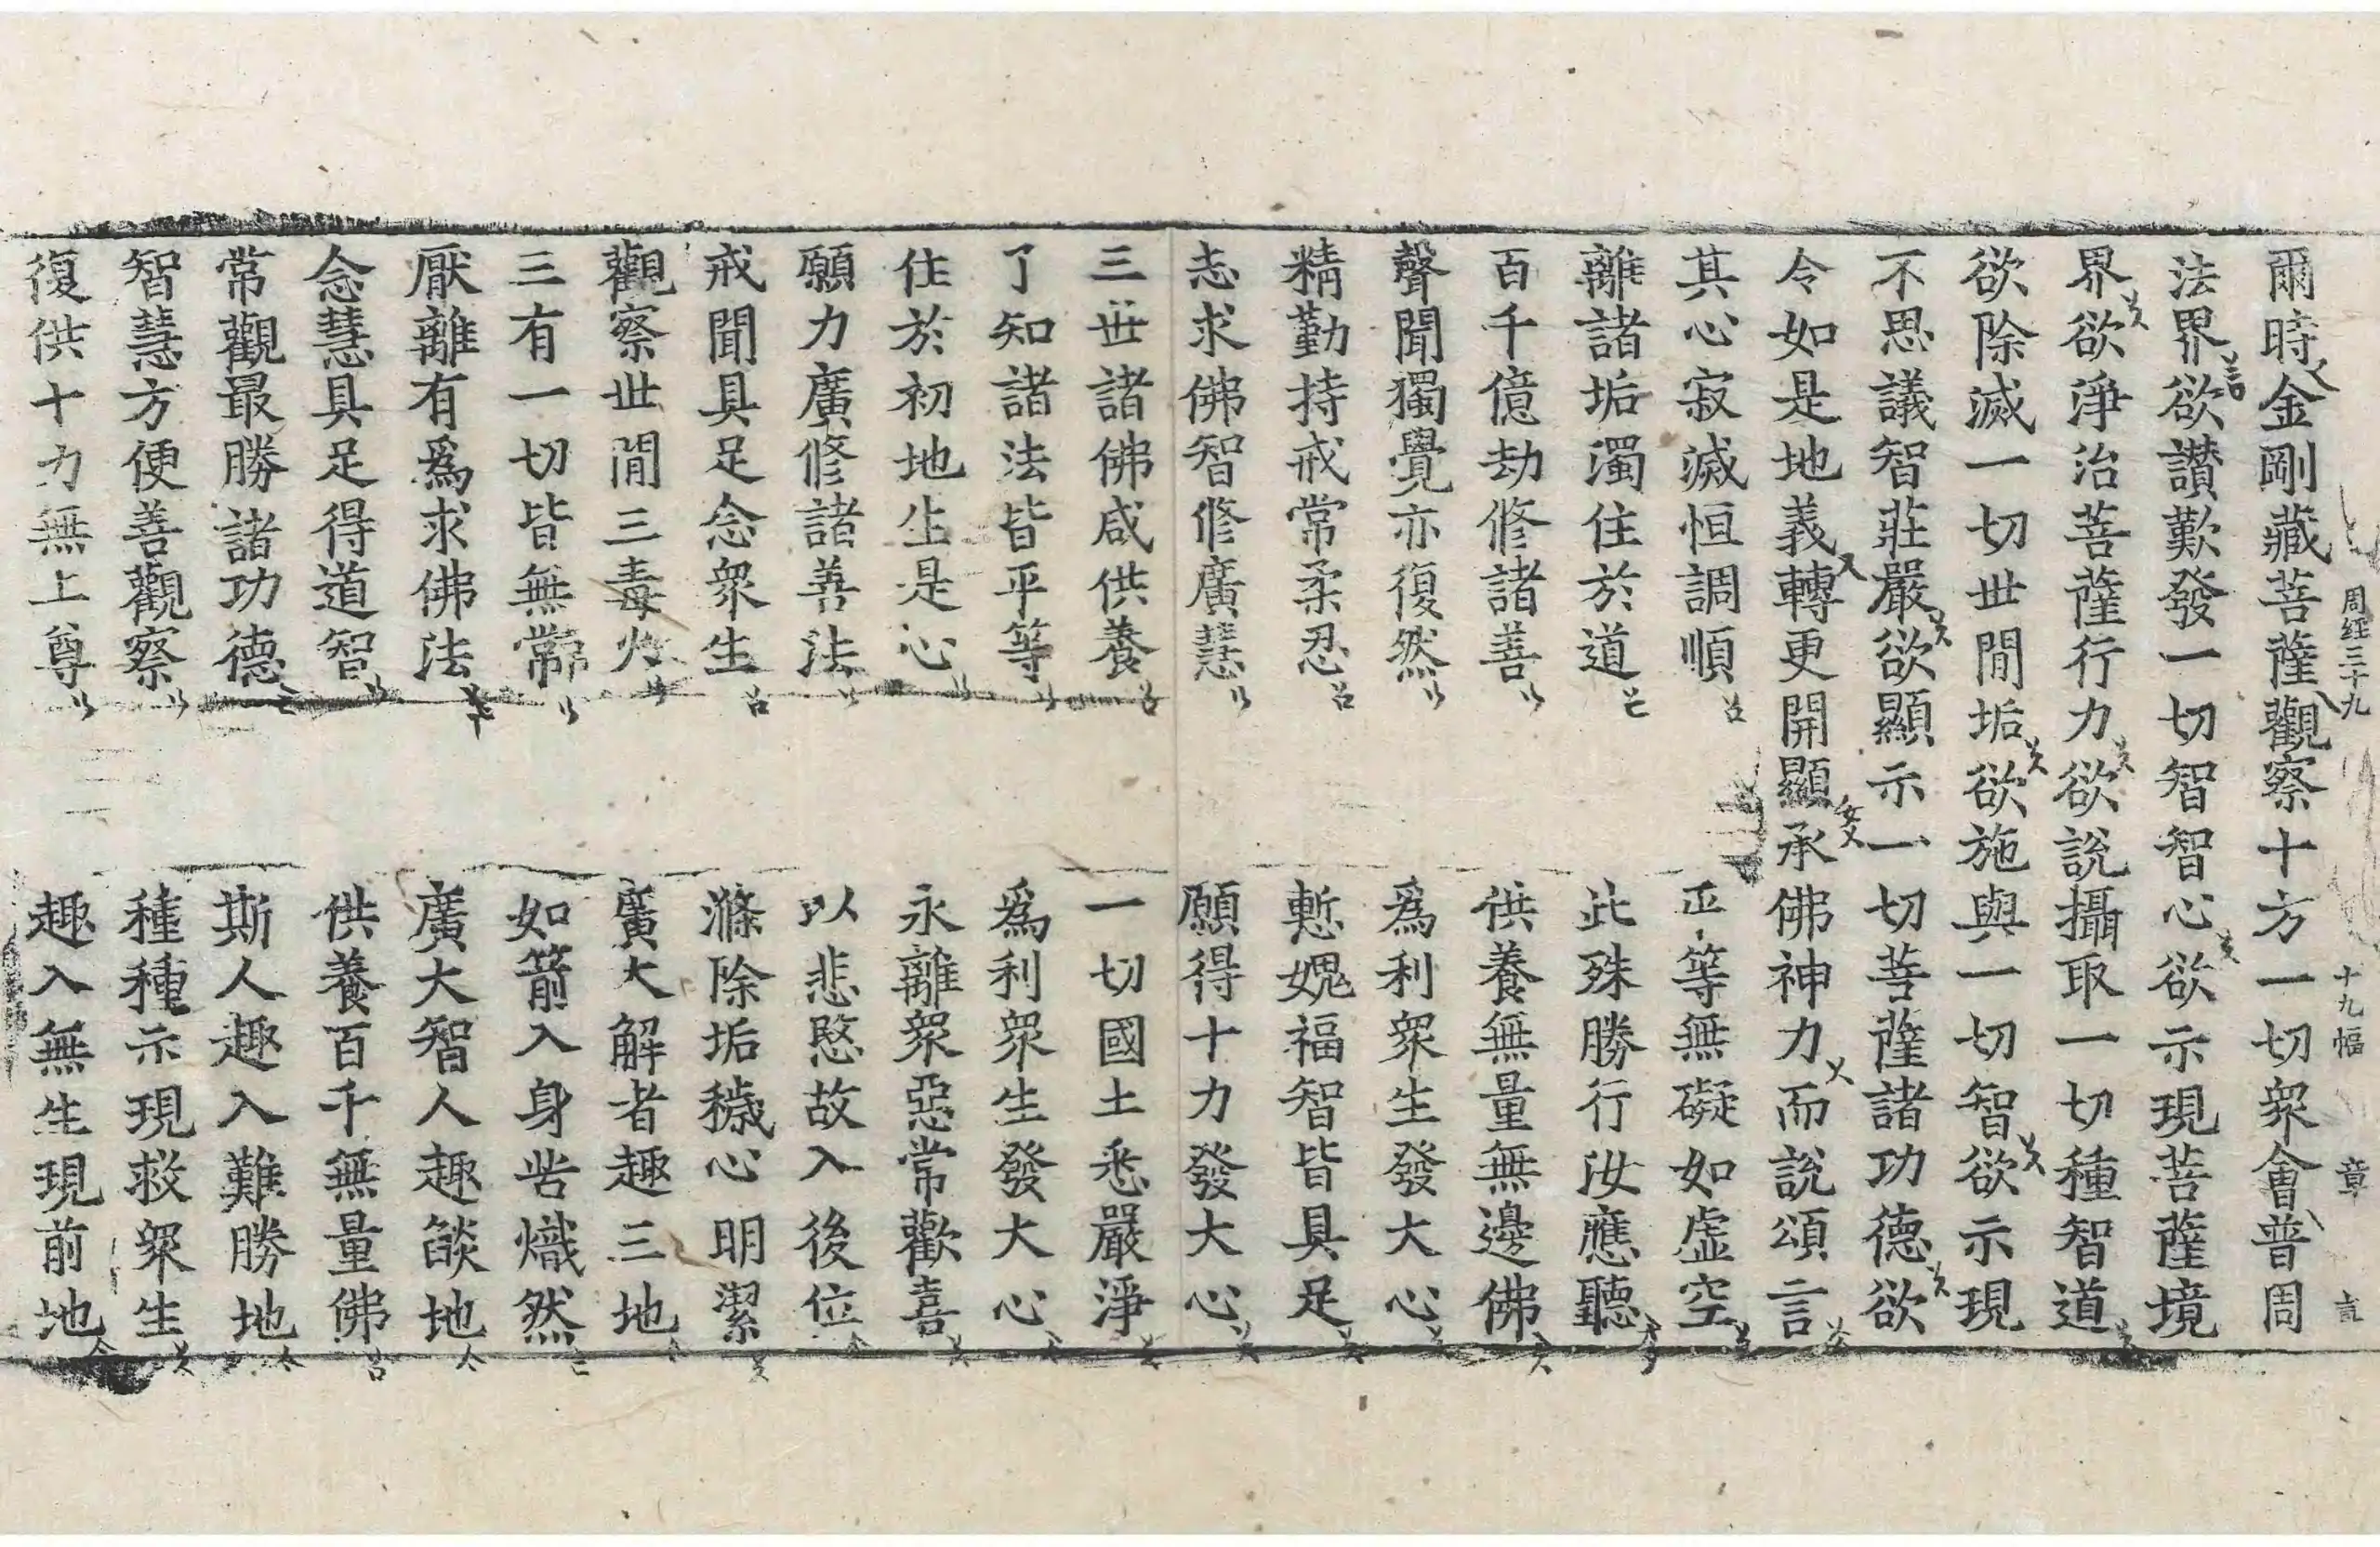 周経三十九 十九幅 章 言
爾時金剛藏菩薩觀察十方一切衆會普周
法界欲讚歎發一切智智心欲示現菩薩境
界欲淨治菩薩行力欲說攝取一切種智道
欲除滅一切世間垢欲施與一切智欲示現
不思議智莊嚴欲顯示一切菩薩諸功德欲
令如是地義轉更開顯承佛神力而說頌言
其心寂滅恒調順 正等無礙如虛空
離諸垢濁住於道 此殊勝行汝應聽
百千億劫修諸善 供養無量無邊佛
聲聞獨覺亦復然 爲利衆生發大心
精勤持戒常柔忍 慙愧福智皆具足
志求佛智修廣慧 願得十力發大心
三世諸佛咸供養 一切國土悉嚴淨
了知諸法皆平等 爲利衆生發大心
住於初地生是心 永離衆惡常歡喜
願力廣修諸善法 以悲愍故入後位
戒聞具足念衆生 滌除垢穢心明潔
觀察世間三毒火 廣大解者趣三地
三有一切皆無常 如箭入身苦熾然
厭離有爲求佛法 廣大智人趣燄地
念慧具足得道智 供養百千無量佛
常觀最勝諸功德 斯人趣入難勝地
智慧方便善觀察 種種示現救衆生
復供十力無上尊 趣入無生現前地